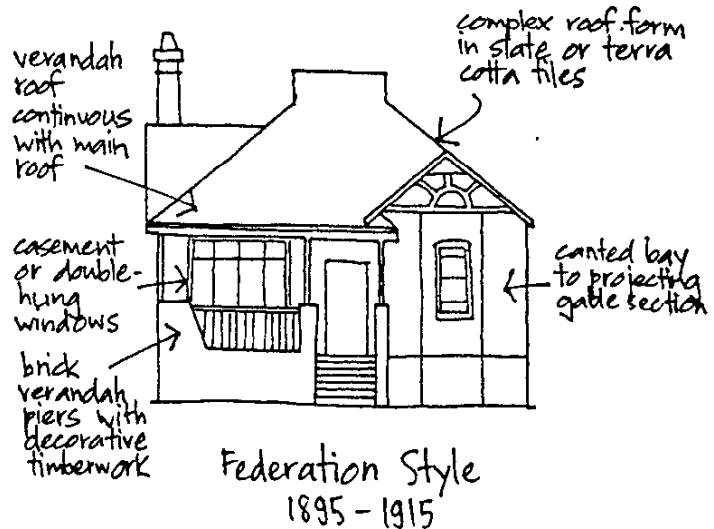 verandah
roof
continuous
with main
roof
complex roof form
in slate or terra
cotta tiles
casement
or double-
hung
windows
canted bay
to projecting
gable section
brick
verandah
piers with
decorative
timberwork
Federation Style
1895 - 1915